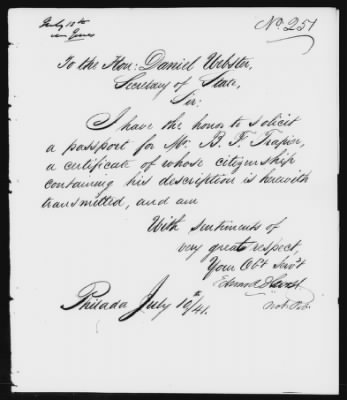 July 12th
No. 251
To the Hon: Daniel Webster,
Secretary of State,
Sir:
I have the honor to solicit
a passport for Mr. B. F. Trapier,
a certificate of whose citizenship
containing his description is herewith
transmitted, and am
With sentiments of
very great respect,
Your Obt Servt
Not. Pub.
Philada July 10th/41.